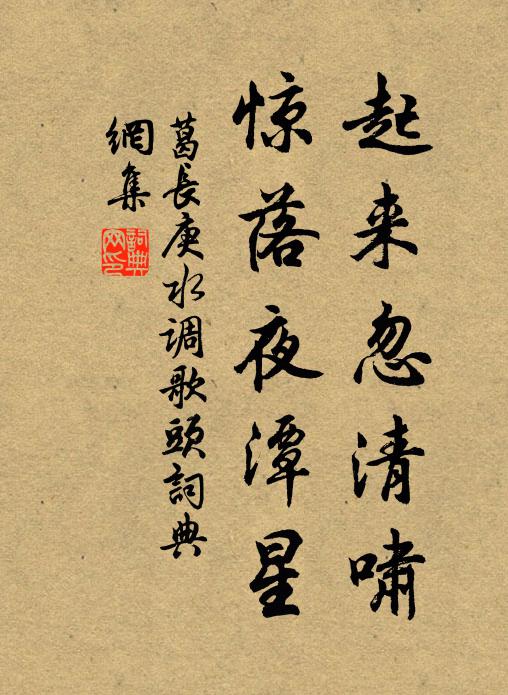 起来忽清啸
惊落夜潭星
葛長庚水调歌頭詞典
網集
詞典
网印